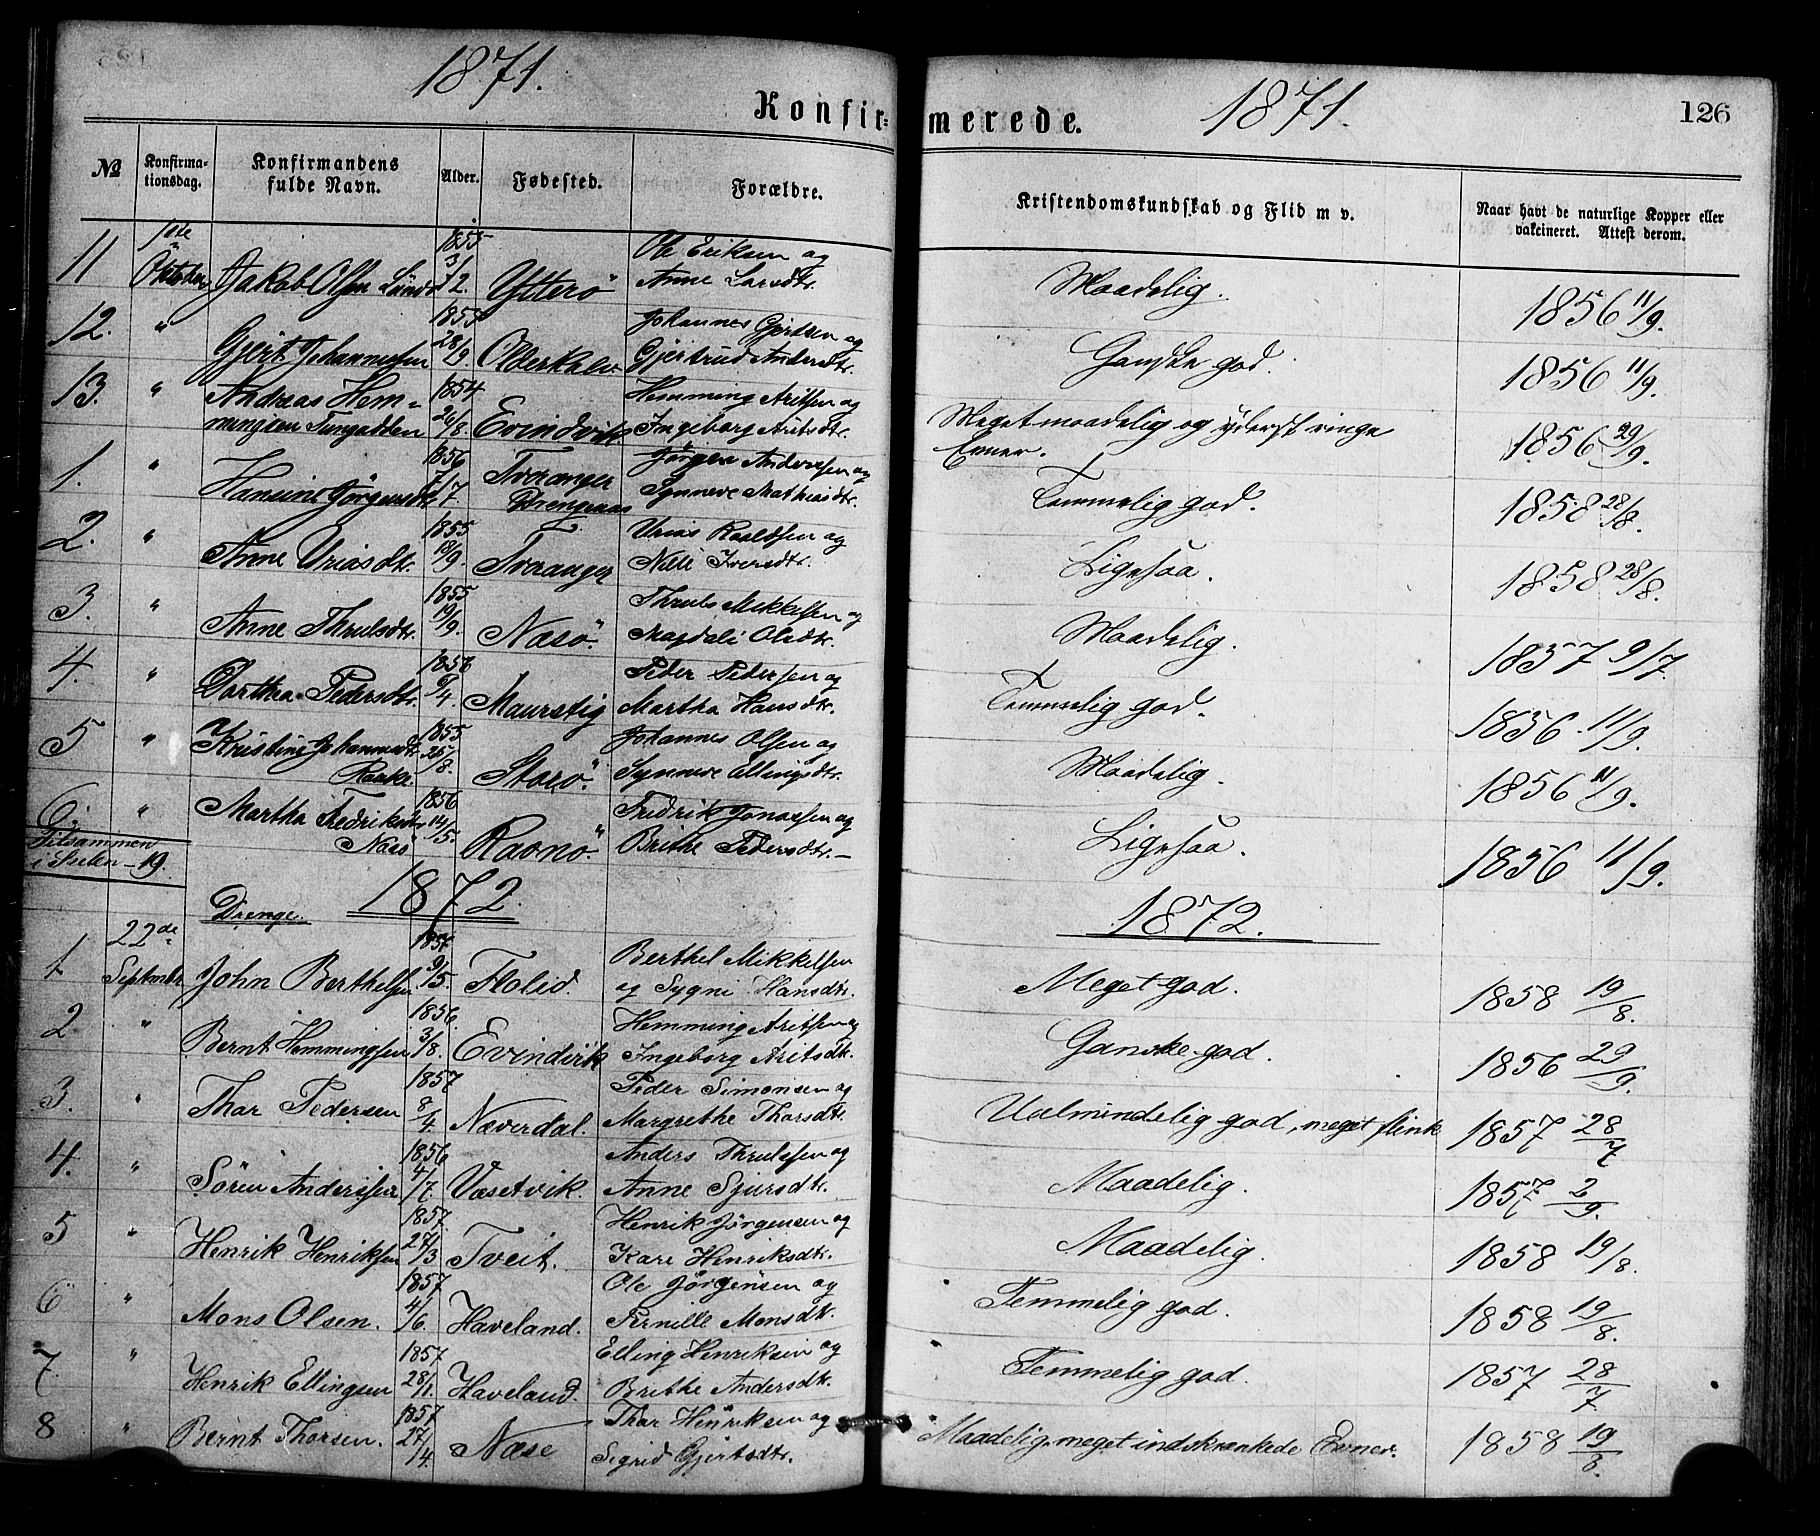 1871.
1871.
126
Konfir=
merede.
№
Konfirma-
tionsdag.
Konfirmandens
fulde Navn.
Alder.
Fødested.
Forældre.
Kristendomskundskab og Flid m v.
Naar havt de naturlige Kopper eller
vakcineret. Attest derom.
11 1ste Oktober Jakob Olsen 1855 Ytterö Ole Eriksen og
Anne Larsdtr. Maadelig. 1856 11/9.
12. " Gjert Johannessen 1855 28/9. Olderkalv Johannes Gjertsen og
Gjertrud Andersdtr. Ganske god. 1856 11/9.
13. " Andreas Hem-
mingsen Tungodden 1854 26/8. Evindvik Hemming Aritsen og
Ingeborg Aritsdtr. Meget maadelig og yderst ringe
Evner. 1856 29/9.
1. " Hansine Jörgensdtr. 1856 7/7. Tveranger
Drengenæs Jörgen Andersen og
Synneve Mathiasdtr. Temmelig god. 1858 28/8.
2. " Anne Uriasdtr. 1855 18/9. Tveranger Urias Roaldsen og
Nille Iversdtr. Ligesaa. 1858 28/8.
3. " Anne Thrulsdtr. 1855 19/9. Næsö. Thruls Mikkelsen og
Magdali Olsdtr. Maadelig. 1857 9/7.
4. " Dorthea Pedersdtr. 1856 /4. Maurstig Peder Pedersen og
Martha Hansdtr. Temmelig god. 1856 11/9.
5 " Kristine Johannesdtr.
1855 25/8. Storö. Johannes Olsen og
Synneve Ellingsdtr. Maadelig. 1856 11/9.
6. " Martha Fredriksdtr.
Næsö 1856 14/5. Ravnö. Fredrik Jonassen og
Brithe Pedersdtr. Ligesaa. 1856 11/9.
Tilsammen
19.
1872.
1872.
Drenge.
1 22de September John Berthelsen 1857 9/5. Flolid. Berthel Mikkelsen
og Sygni Hansdtr. Meget god. 1858 19/8.
2. " Bernt Hemmingsen 1856. 3/8. Evindvik Hemming Aritsen og
Ingeborg Aritsdtr. Ganske god. 1856 29/9.
3. " Thor Pedersen 1857 8/4 Næverdal. Peder Simonsen og
Margrethe Thorsdtr. Ualmindelig god, meget flink 1857 28/7
4. " Sören Andersen 1856 4/7. Væsetvik. Anders Thrulssen og
Anne Sjursdtr. Maadelig. 1857 2/9.
5 " Henrik Henriksen 1857. 27/3 Tveit. Henrik Jörgensen og
Kari Henriksdtr. Maadelig. 1858 19/8.
6 " Mons Olsen. 1857 4/6. Haveland. Ole Jörgensen og
Pernille Monsdtr. Temmelig god. 1858 19/8.
7 " Henrik Ellingsen 1857 28/1 Haveland. Elling Henriksen og
Brithe Andersdtr. Temmelig god. 1857 28/7
8 " Bernt Thorsen. 1857 27/4. Næse Thor Henriksen og
Sigrid Gjertsdtr. Maadelig, meget indskrænkede Evner. 1858 19/8.